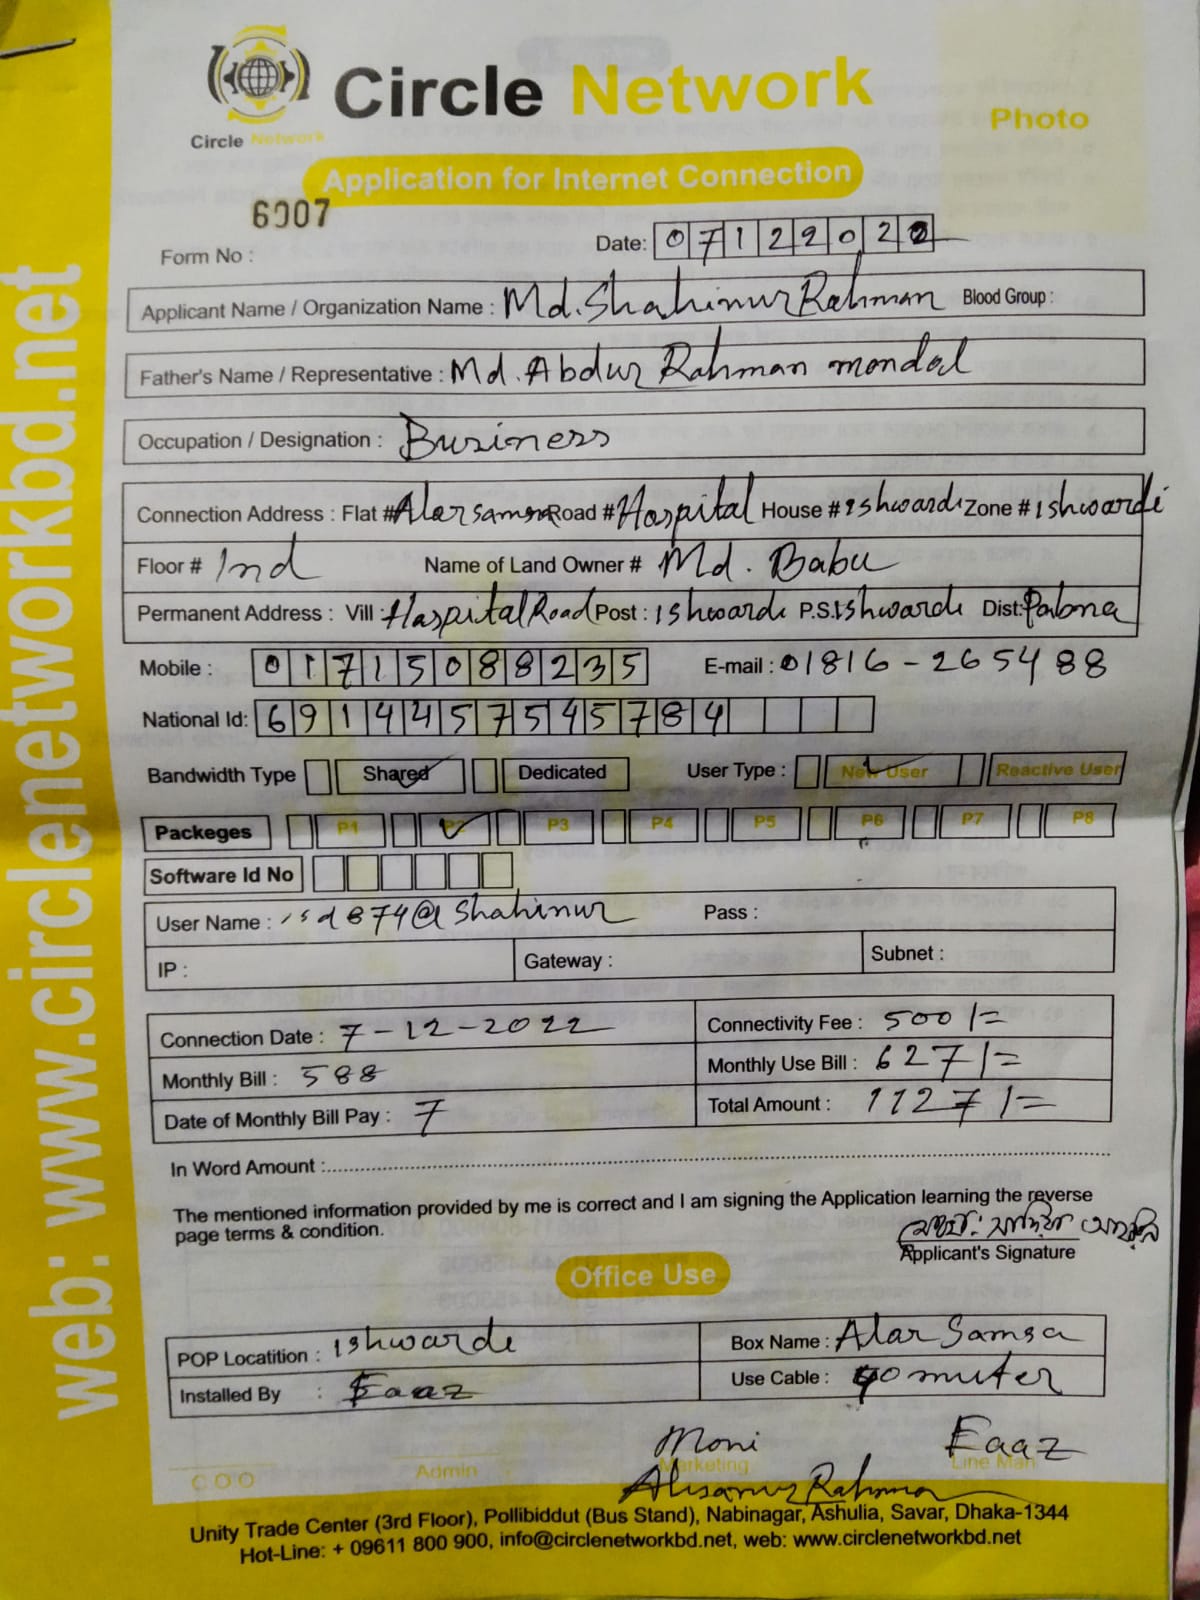 Circle Network
Circle Network
Photo
Application for Internet Connection
6007
Form No :
Date: 07122022
Applicant Name / Organization Name : Md. Shahinur Rahman Blood Group :
Father's Name / Representative : Md. Abdur Rahman mondal
Occupation / Designation : Business
Connection Address : Flat # Alarsamsa Road # Hospital House # Ishwardi Zone # Ishwardi
Floor # Ind Name of Land Owner # Md. Babu
Permanent Address : Vill : Haspital Road Post : Ishwardi P.S. Ishwardi Dist: Pabna
Mobile : 01715088235 E-mail : 01816-265488
National Id: 6914457545784
Bandwidth Type Shared Dedicated User Type : New User Reactive User
Packeges P1 P2 P3 P4 P5 P6 P7 P8
Software Id No
User Name : isd874@shahinur Pass :
IP : Gateway : Subnet :
Connection Date : 7-12-2022 Connectivity Fee : 500/=
Monthly Bill : 588 Monthly Use Bill : 627/=
Date of Monthly Bill Pay : 7 Total Amount : 1127/=
In Word Amount :
The mentioned information provided by me is correct and I am signing the Application learning the reverse
page terms & condition.
Applicant's Signature
Office Use
POP Locatition : Ishwardi Box Name : Alar Samsa
Installed By : Eaaz Use Cable : 40 muter
Moni Eaaz
COO Admin Marketing Line Man
Rahman
Unity Trade Center (3rd Floor), Pollibiddut (Bus Stand), Nabinagar, Ashulia, Savar, Dhaka-1344
Hot-Line: + 09611 800 900, info@circlenetworkbd.net, web: www.circlenetworkbd.net
web: www.circlenetworkbd.net